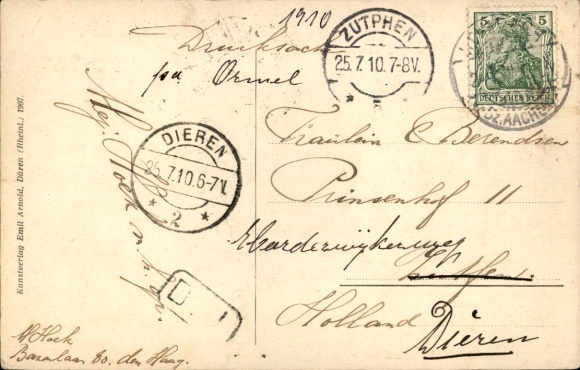 1910
Drucksach
ZUTPHEN
25.7.10.7-8V.
5 5
DEUTSCHES REICH
BZ. AACHEN
Kunstverlag Emil Arnold, Düren (Rheinl.) 1907.
Mej. Hoek
DIEREN
25.7.10.6-7V.
2
Fräulein C Berendsen
Prinsenhof 11
Harderwijkerweg
Zutfen.
Holland
Dieren
M Hoek
den Haag.